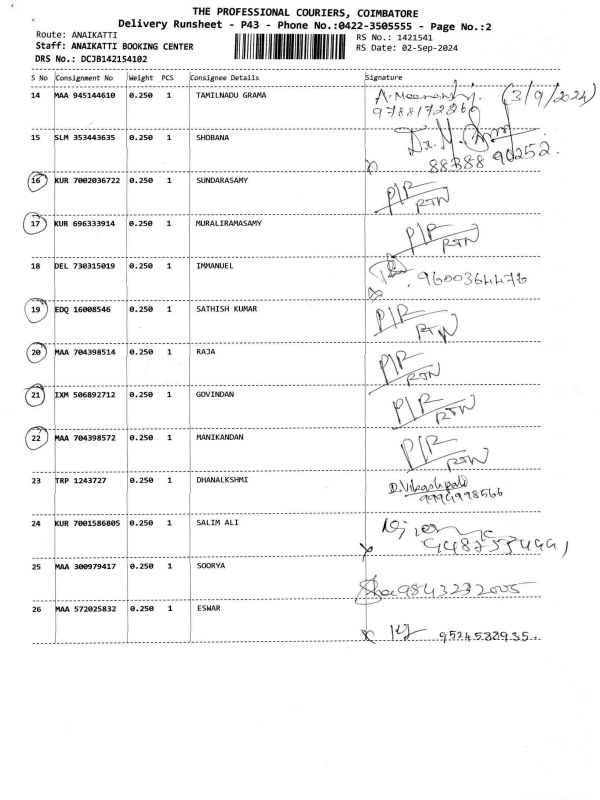 THE PROFESSIONAL COURIERS, COIMBATORE
Delivery Runsheet - P43 - Phone No.:0422-3505555 - Page No.:2
Route: ANAIKATTI
RS No.: 1421541
Staff: ANAIKATTI BOOKING CENTER
RS Date: 02-Sep-2024
DRS No.: DCJB142154102
S No Consignment No Weight PCS Consignee Details Signature
14 MAA 945144610 0.250 1 TAMILNADU GRAMA (3/9/2024)
15 SLM 353443635 0.250 1 SHOBANA
88388 90252.
16 KUR 7002036722 0.250 1 SUNDARASAMY P/R
RTN
17 KUR 696333914 0.250 1 MURALIRAMASAMY P/R
RTN
18 DEL 730315019 0.250 1 IMMANUEL
19 EDQ 16008546 0.250 1 SATHISH KUMAR P/R
RTN
20 MAA 704398514 0.250 1 RAJA P/R
RTN
21 IXM 506892712 0.250 1 GOVINDAN P/R
RTN
22 MAA 704398572 0.250 1 MANIKANDAN P/R
RTN
23 TRP 1243727 0.250 1 DHANALKSHMI
9994998566
24 KUR 7001586805 0.250 1 SALIM ALI
25 MAA 300979417 0.250 1 SOORYA 9843232005
26 MAA 572025832 0.250 1 ESWAR